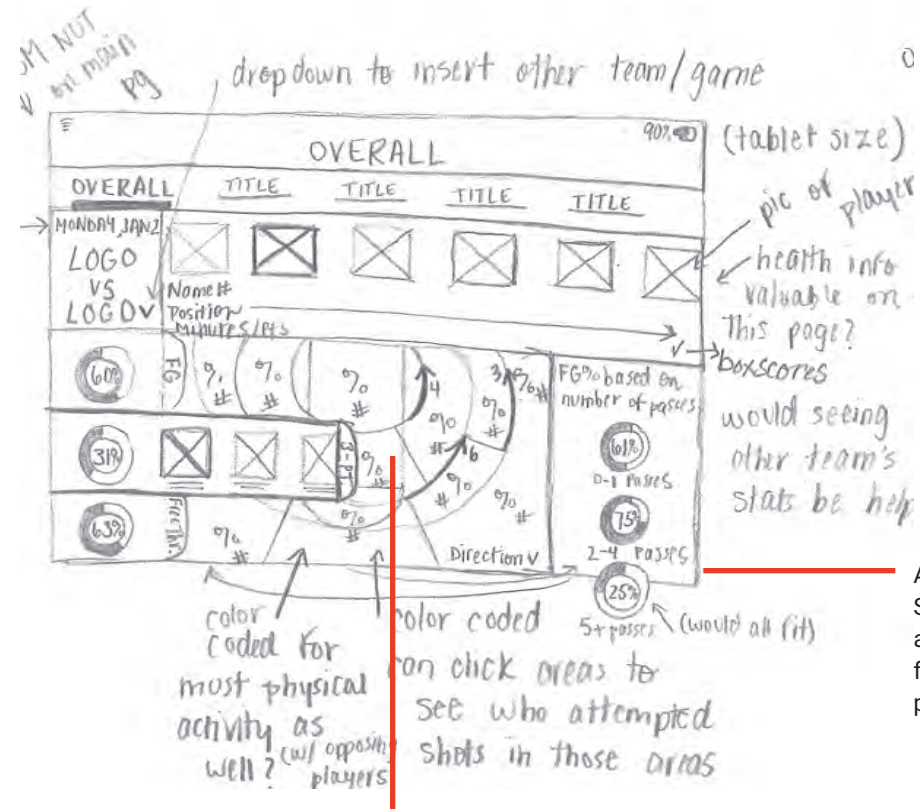 NOT
on main
pg
dropdown to insert other team/game
(tablet size)
90%
OVERALL
OVERALL TITLE TITLE TITLE TITLE
pic of
player
MONDAY, JAN 2
LOGO
VS
LOGO V
Name #
Position
Minutes/Pts
health info
valuable on
this page?
boxscores
would seeing
other team's
stats be help
60%
FG
% #
% #
% #
4
% #
3
% #
% #
31%
3-PT
% #
6
% #
% #
63%
% #
% #
Direction V
FG% based on
number of passes
61%
0-1 Passes
75%
2-4 Passes
25%
5+ passes
(would all fit)
color
coded for
most physical
activity as
well? (w/ opposing
players
color coded
can click areas to
see who attempted
shots in those areas
A
S
a
f
p